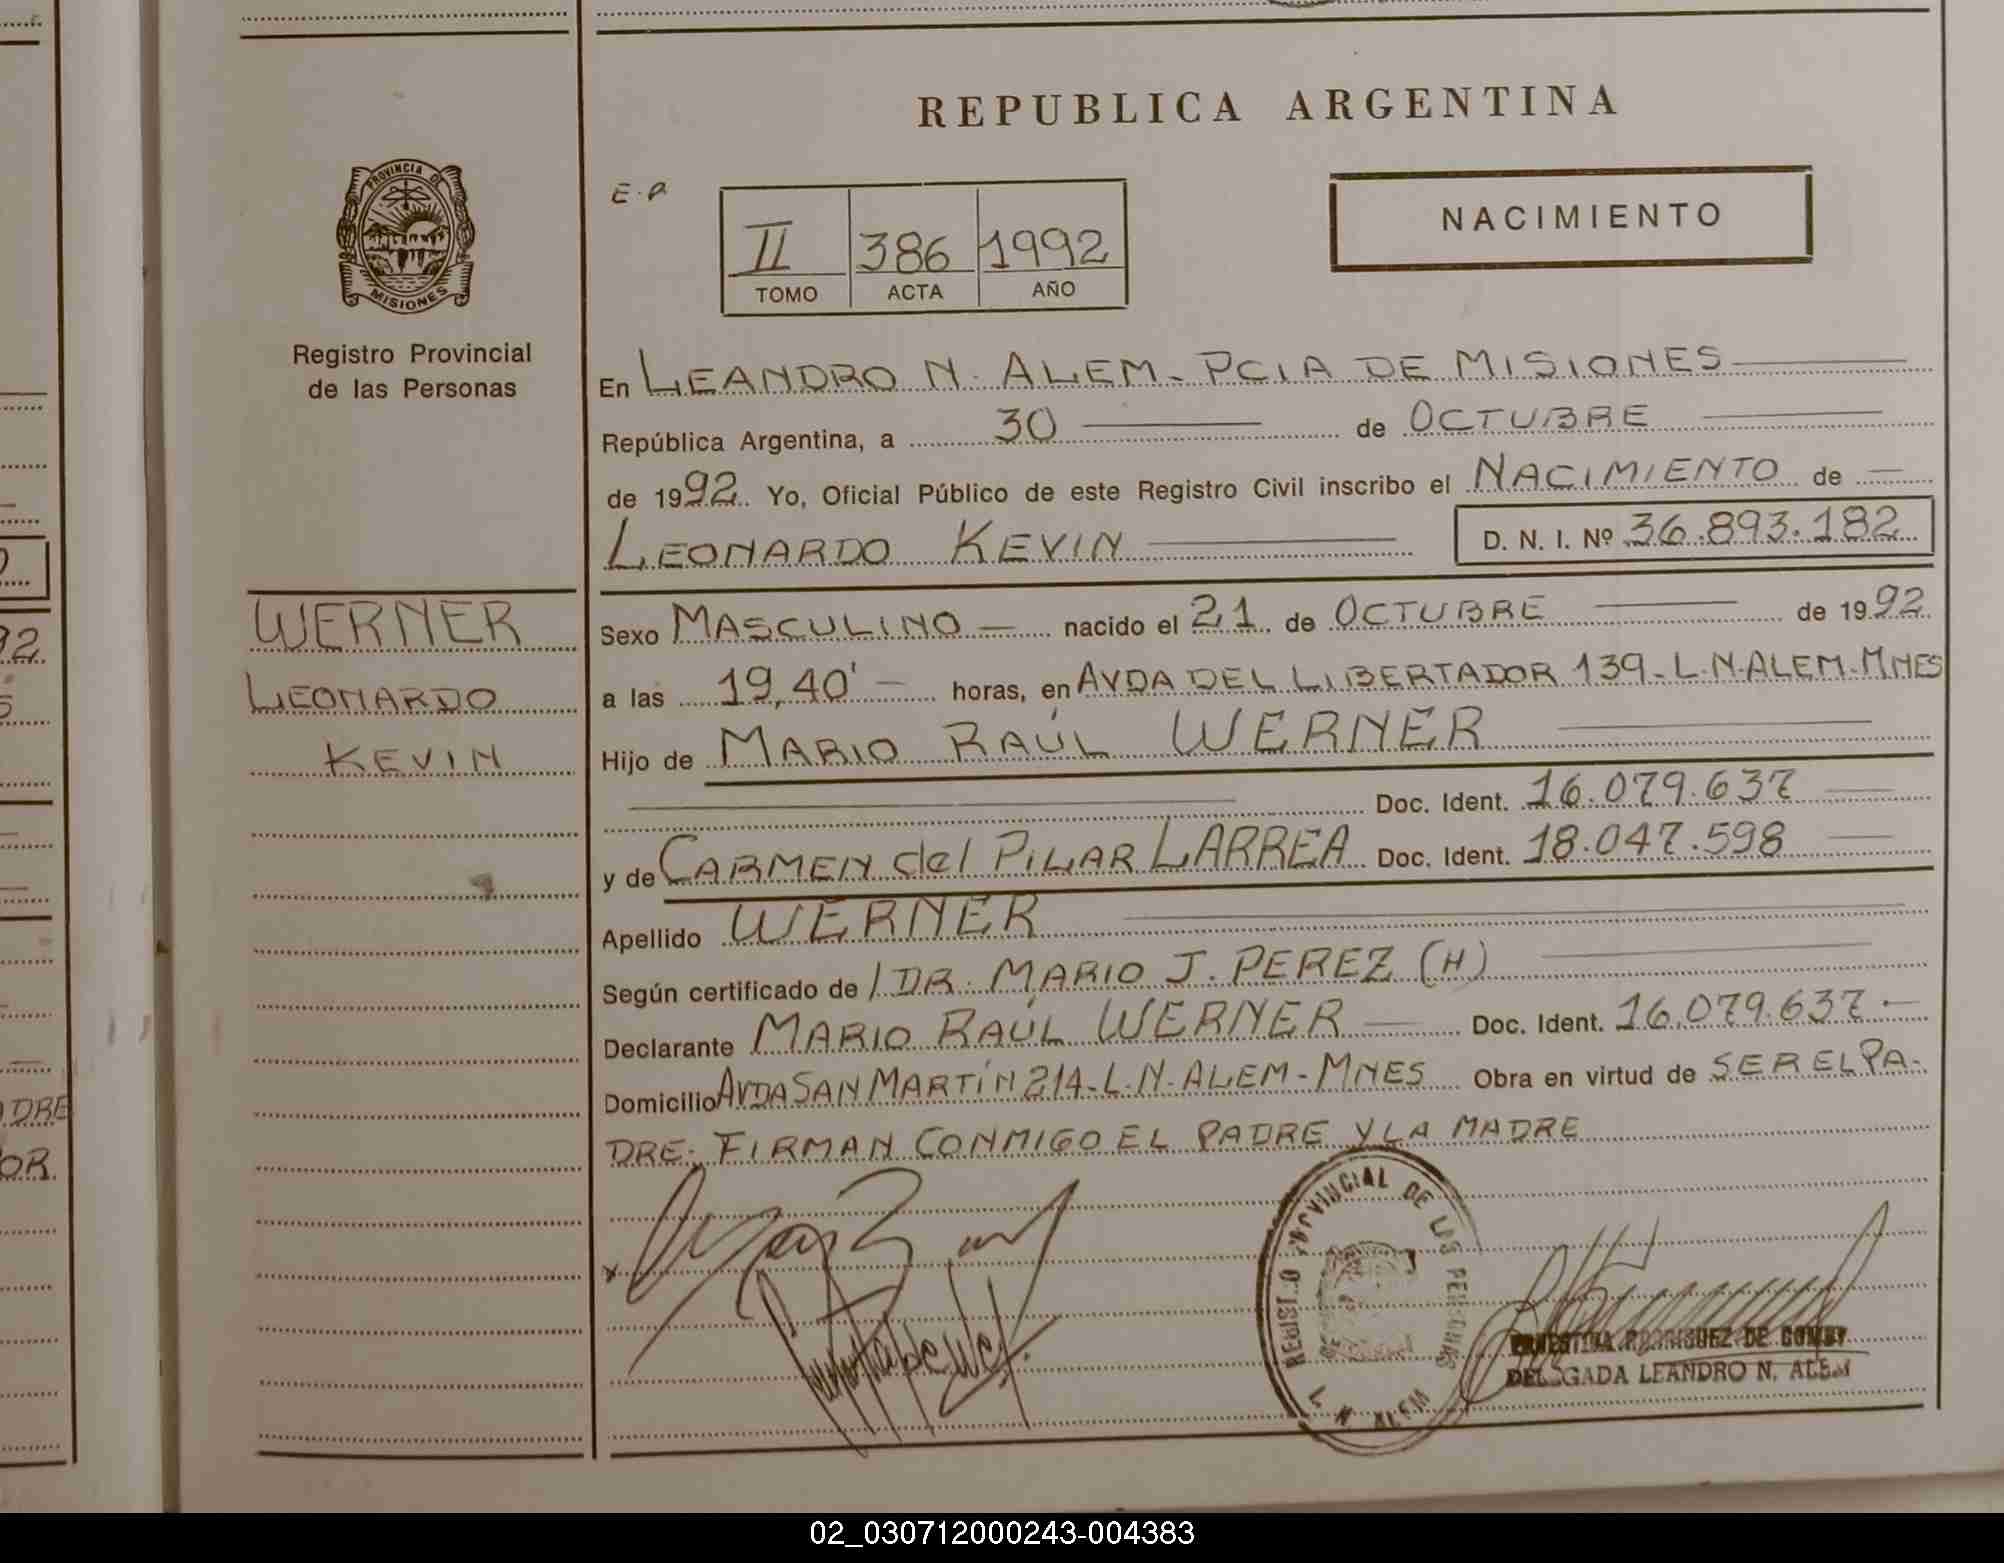 REPUBLICA ARGENTINA
PROVINCIA D
MISIONES
Registro Provincial
de las Personas
E.P
II 386 1992
TOMO ACTA AÑO
NACIMIENTO
En LEANDRO N. ALEM - PCIA DE MISIONES
República Argentina, a 30 de OCTUBRE
de 1992. Yo, Oficial Público de este Registro Civil inscribo el NACIMIENTO de
LEONARDO KEVIN D. N. I. Nº 36.893.182
WERNER
LEONARDO
KEVIN
Sexo MASCULINO nacido el 21 de OCTUBRE de 1992
a las 19,40' horas, en AVDA DEL LIBERTADOR 139-L.N.ALEM-MNES
Hijo de MARIO RAÚL WERNER
Doc. Ident. 16.079.637
y de CARMEN del PILAR LARREA Doc. Ident. 18.047.598
Apellido WERNER
Según certificado de / DR. MARIO J. PEREZ (H)
Declarante MARIO RAÚL WERNER Doc. Ident. 16.079.637.-
Domicilio AVDA SAN MARTÍN 214-L.N.ALEM-MNES Obra en virtud de SER EL PA-
DRE. FIRMAN CONMIGO EL PADRE Y LA MADRE
REGISTRO PROVINCIAL DE LAS PERSONAS
L. N. ALEM
RODRIGUEZ DE
DELEGADA LEANDRO N. ALEM
92
DRE
OR.
02_030712000243-004383